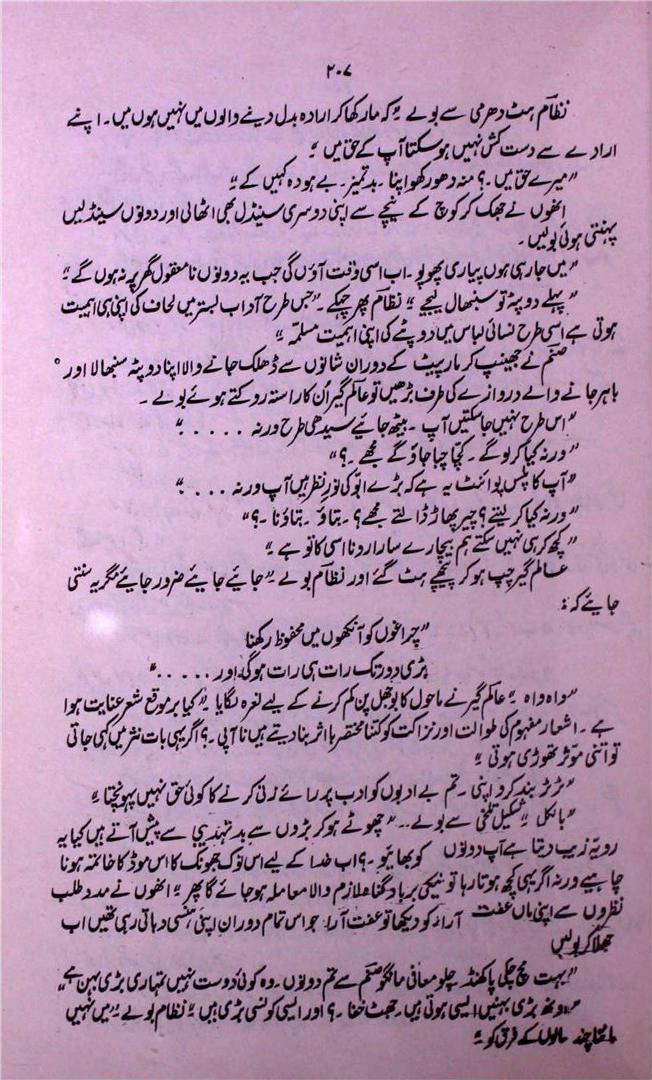 ۲۰۷
نظام ہٹ دھرمی سے بولے "کہ مار کھا کر ارادہ بدل دینے والوں میں نہیں ہوں میں۔ اپنے
ارادے سے دست کش نہیں ہو سکتا آپ کے حق میں"
"میرے حق میں۔؟ منہ دھو رکھو اپنا۔ بدتمیز۔ بے ہودہ کہیں کے"
انھوں نے جھک کر کوچ کے نیچے سے اپنی دوسری سینڈل بھی اٹھالی اور دونوں سینڈلیں
پہنتی ہوئی بولیں۔
"میں جا رہی ہوں پیاری پھوپو۔ اب اسی وقت آؤں گی جب یہ دونوں نامعقول گھر پر نہ ہوں گے"
"پہلے دوپٹہ تو سنبھال لیجے" نظام پھر چہکے۔ "جس طرح آداب بستر میں لحاف کی اپنی ہی اہمیت
ہوتی ہے اسی طرح نسائی لباس میں دوپٹے کی اپنی اہمیت مسلّمہ"
صنم نے جھینپ کر مار پیٹ کے دوران شانوں سے ڈھلک جانے والا اپنا دوپٹہ سنبھالا اور
باہر جانے والے دروازے کی طرف بڑھیں تو عالم گیر اُن کا راستہ روکتے ہوئے بولے۔
"اس طرح نہیں جا سکتیں آپ۔ بیٹھ جائیے سیدھی طرح ورنہ ....."
"ورنہ کیا کر لو گے۔ کچّا چبا جاؤ گے مجھے۔؟"
"آپ کا پلس پوائنٹ یہ ہے کہ بڑے ابّو کی نورِ نظر ہیں آپ ورنہ ...."
"ورنہ کیا کر لیتے؟ چیر پھاڑ ڈالتے مجھے؟۔ بتاؤ۔ بتاؤ نا۔؟"
"کچھ کر ہی نہیں سکتے ہم بیچارے سارا رونا اسی کا تو ہے"
عالم گیر چپ ہو کر پیچھے ہٹ گئے اور نظام بولے "جائیے جائیے ضرور جائیے مگر یہ سنتی
جایئے کہ:
"چراغوں کو آنکھوں میں محفوظ رکھنا
بڑی دور تک رات ہی رات ہوگی اور ....."
"واہ واہ" عالم گیر نے ماحول کا بوجھل پن کم کرنے کے لیے نعرہ لگایا "کیا برموقع شعر عنایت ہوا
ہے۔ اشعار مفہوم کی طوالت اور نزاکت کو کتنا مختصر با اثر بنا دیتے ہیں نا آپی۔؟ اگر یہی بات نثر میں کہی جاتی
تو اتنی موثر تھوڑی ہوتی"
"ٹرٹر بند کرو اپنی۔ تم بے ادبوں کو ادب پر رائے زنی کرنے کا کوئی حق نہیں پہونچتا"
"بالکل" شکیل تلخی سے بولے.. "چھوٹے ہو کر بڑوں سے بد تہذیبی سے پیش آتے ہیں کیا یہ
رویّہ زیب دیتا ہے آپ دونوں کو بھائیو۔؟ اب خدا کے لیے اس نوک جھونک کا اس موڈ کا خاتمہ ہونا
چاہیے ورنہ اگر یہی کچھ ہوتا رہا تو نیکی برباد گناہ لازم والا معاملہ ہو جائے گا پھر" انھوں نے مدد طلب
نظروں سے اپنی ماں عفت آراء کو دیکھا تو عفت آراء جو اس تمام دوران اپنی ہنسی دباتی رہی تھیں اب
جھلّا کر بولیں
"بہت مچ چکی پاکھنڈ۔ چلو معافی مانگو صنم سے تم دونوں۔ وہ کوئی دوست نہیں تمہاری بڑی بہن ہے"
بڑی بہنیں ایسی ہوتی ہیں۔ جھٹ خفا۔؟ اور ایسی کونسی بڑی ہیں" نظام بولے "میں نہیں
مانتا چند سالوں کے فرق کو"